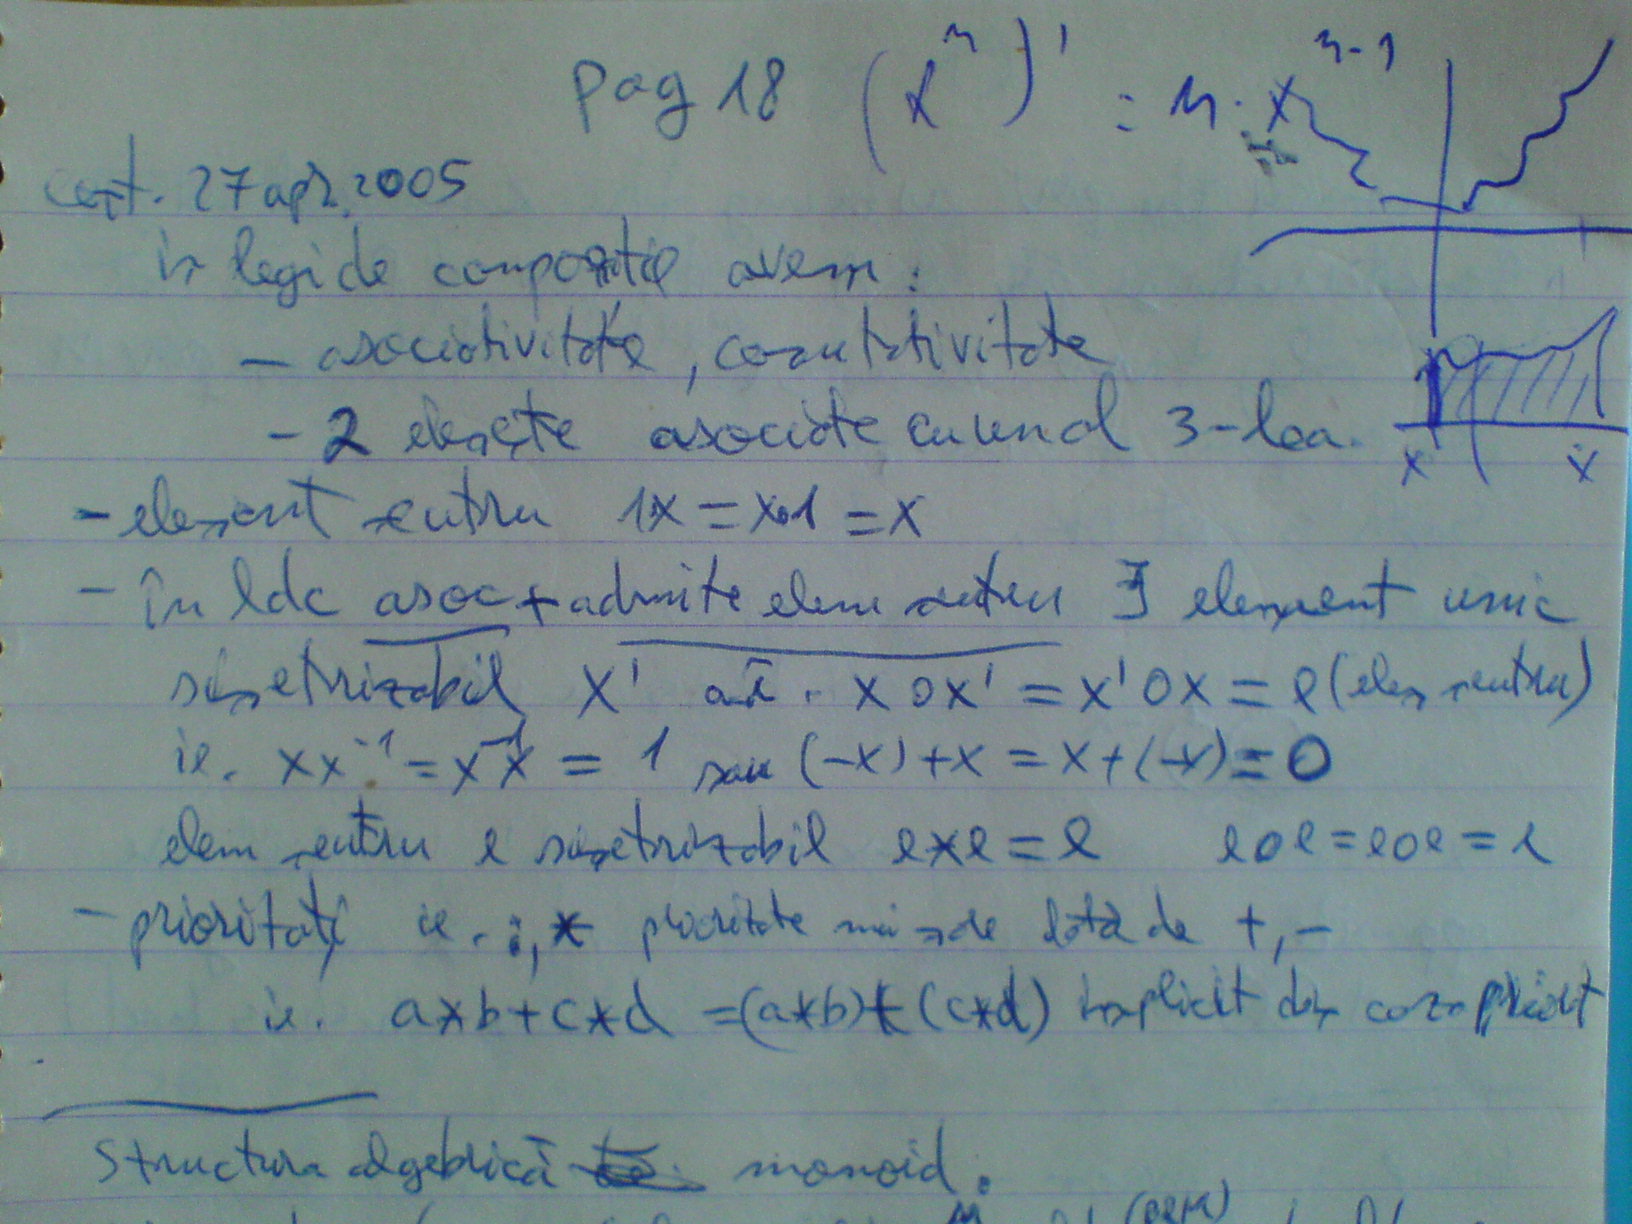 pag 18 (x^n)' = n·x^(n-1)
cont. 27 apr. 2005
în legi de compoziție avem:
- asociativitate, comutativitate
- 2 elemente asociate cu unul 3-lea.
- element neutru 1x = x·1 = x
- în ldc asoc + admite elem neutru ∃ element unic
simetrizabil x' aî. x o x' = x' o x = e (elem neutru)
ie. xx^-1 = x^-1x = 1 sau (-x)+x = x+(-x) = 0
elem neutru e simetrizabil e*e = e eoe = eoe = e
- priorități ie. :, * prioritate față de +, -
ie. a*b+c*d = (a*b)+(c*d) implicit din
x x
Structura algebrică monoid.